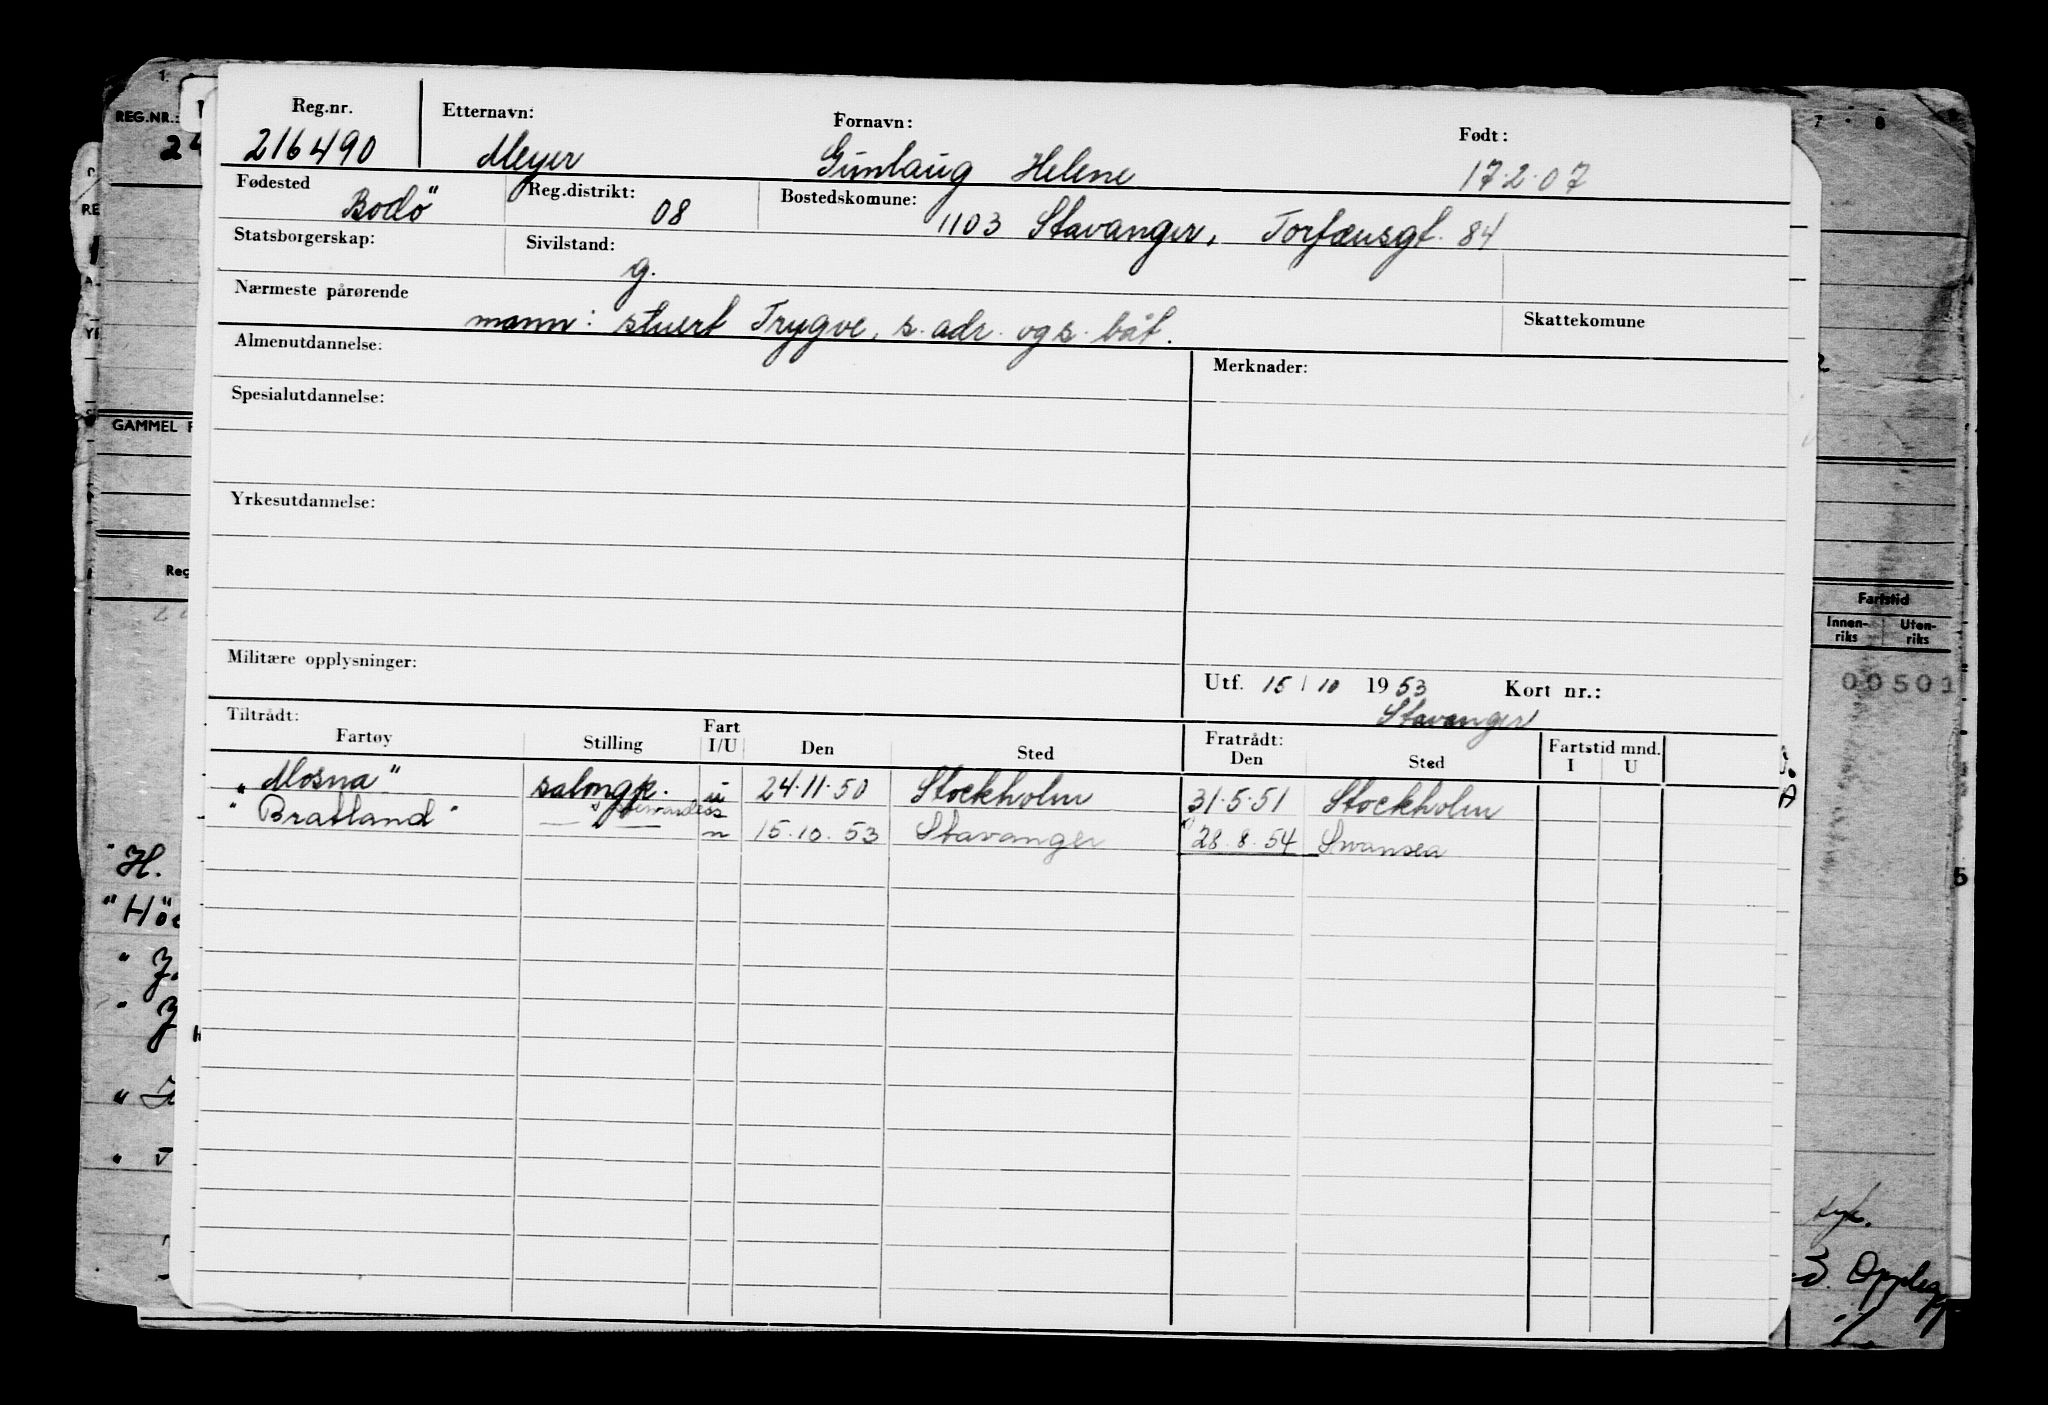 Reg.nr. Etternavn: Fornavn: Født:
216490 Meyer Gunlaug Helene 17.2.07
Fødested Bodö Reg.distrikt: 08 Bostedskomune: 1103 Stavanger, Torfæusgt. 84
Statsborgerskap: Sivilstand: g.
Nærmeste pårørende mann: stuert Trygve, s. adr. ogs. båt. Skattekomune
Almenutdannelse: Merknader:
Spesialutdannelse:
Yrkesutdannelse:
Militære opplysninger:
Utf. 15/10 1953 Kort nr.:
Stavanger
Tiltrådt: Fratrådt:
Fartøy Stilling Fart I/U Den Sted Den Sted Fartstid mnd. I U
"Mosna" salongp. u 24.11.50 Stockholm 31.5.51 Stockholm
"Bratland" — " — u 15.10.53 Stavanger 28.8.54 Swansea
REG.NR.:
GAMMEL F
Reg
Fartstid
Innenriks Utenriks
00503
"H.
"Hö
3. Opplegg